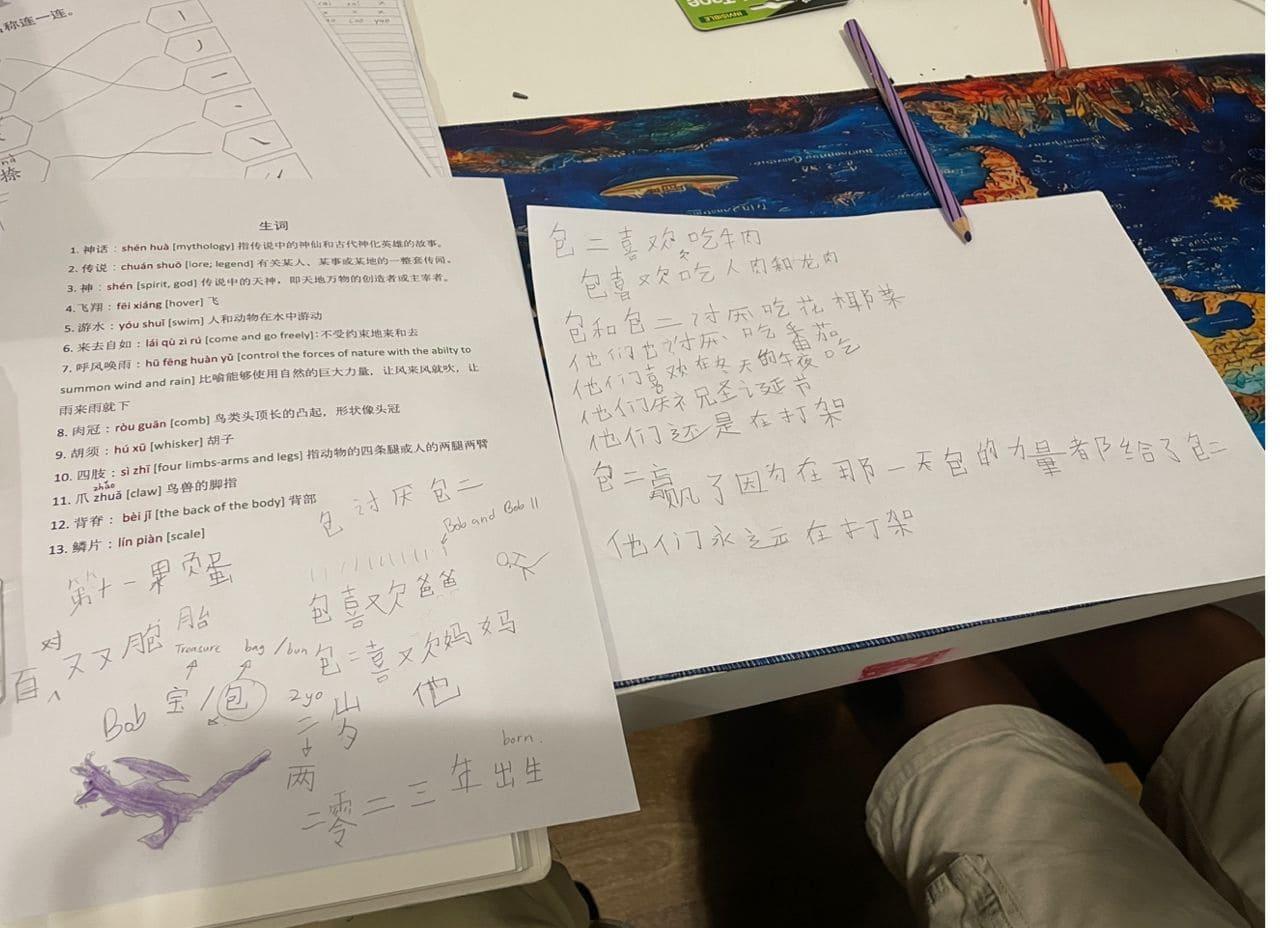 称连一连。
INVISIBLE
生词
1. 神话：shén huà [mythology] 指传说中的神仙和古代神化英雄的故事。
2. 传说：chuán shuō [lore; legend] 有关某人、某事或某地的一整套传闻。
3. 神：shén [spirit, god] 传说中的天神，即天地万物的创造者或主宰者。
4. 飞翔：fēi xiáng [hover] 飞
5. 游水：yóu shuǐ [swim] 人和动物在水中游动
6. 来去自如：lái qù zì rú [come and go freely]：不受约束地来和去
7. 呼风唤雨：hū fēng huàn yǔ [control the forces of nature with the abilty to
summon wind and rain] 比喻能够使用自然的巨大力量，让风来风就吹，让
雨来雨就下
8. 肉冠：ròu guān [comb] 鸟类头顶长的凸起，形状像头冠
9. 胡须：hú xū [whisker] 胡子
10. 四肢：sì zhī [four limbs-arms and legs] 指动物的四条腿或人的两腿两臂
zhǎo
11. 爪 zhuǎ [claw] 鸟兽的脚指
12. 背脊：bèi jǐ [the back of the body] 背部
13. 鳞片：lín piàn [scale]
包讨厌包二
Bob and Bob II
第十一颗蛋
包喜欢爸爸
对 双胞胎
Treasure bag/bun
包二喜欢妈妈
Bob 宝/包
2yo
二岁 他
两
born.
二零二三年出生
包二喜欢吃牛肉
包喜欢吃人肉和龙肉
包和包二讨厌吃花椰菜
他们也讨厌吃番茄
他们喜欢在冬天的午夜吃
他们庆祝圣诞节
他们还是在打架
包二赢了因为在那一天包的力量都给了包二
他们永远在打架